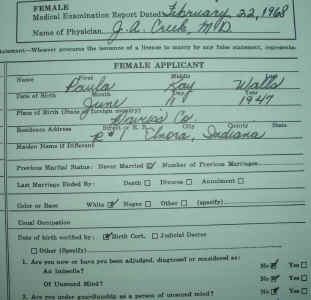 FEMALE
Medical Examination Report Dated February 22, 1968
Name of Physician J. A. Creek, M.D.
Statement—Whoever procures the issuance of a license to marry by any false statement, represents-
FEMALE APPLICANT
Name First Paula Middle Kay Last Walls
Date of Birth Month June Day 11 Year 1947
Place of Birth (State or foreign country) Daviess Co.
Residence Address Street or R. R. City County State
R#1 Elnora, Indiana
Maiden Name if Different
Previous Marital Status: Never Married ☑ Number of Previous Marriages
Last Marriage Ended By: Death ☐ Divorce ☐ Annulment ☐
Color or Race White ☑ Negro ☐ Other ☐ (specify)
Usual Occupation
Date of birth verified by: ☑ Birth Cert. ☐ Judicial Decree
☐ Other (Specify)
1. Are you now or have you been adjudged, diagnosed or considered as:
An Imbecile? No ☑ Yes ☐
Of Unsound Mind? No ☑ Yes ☐
2. Are you under guardianship as a person of unsound mind? No ☑ Yes ☐